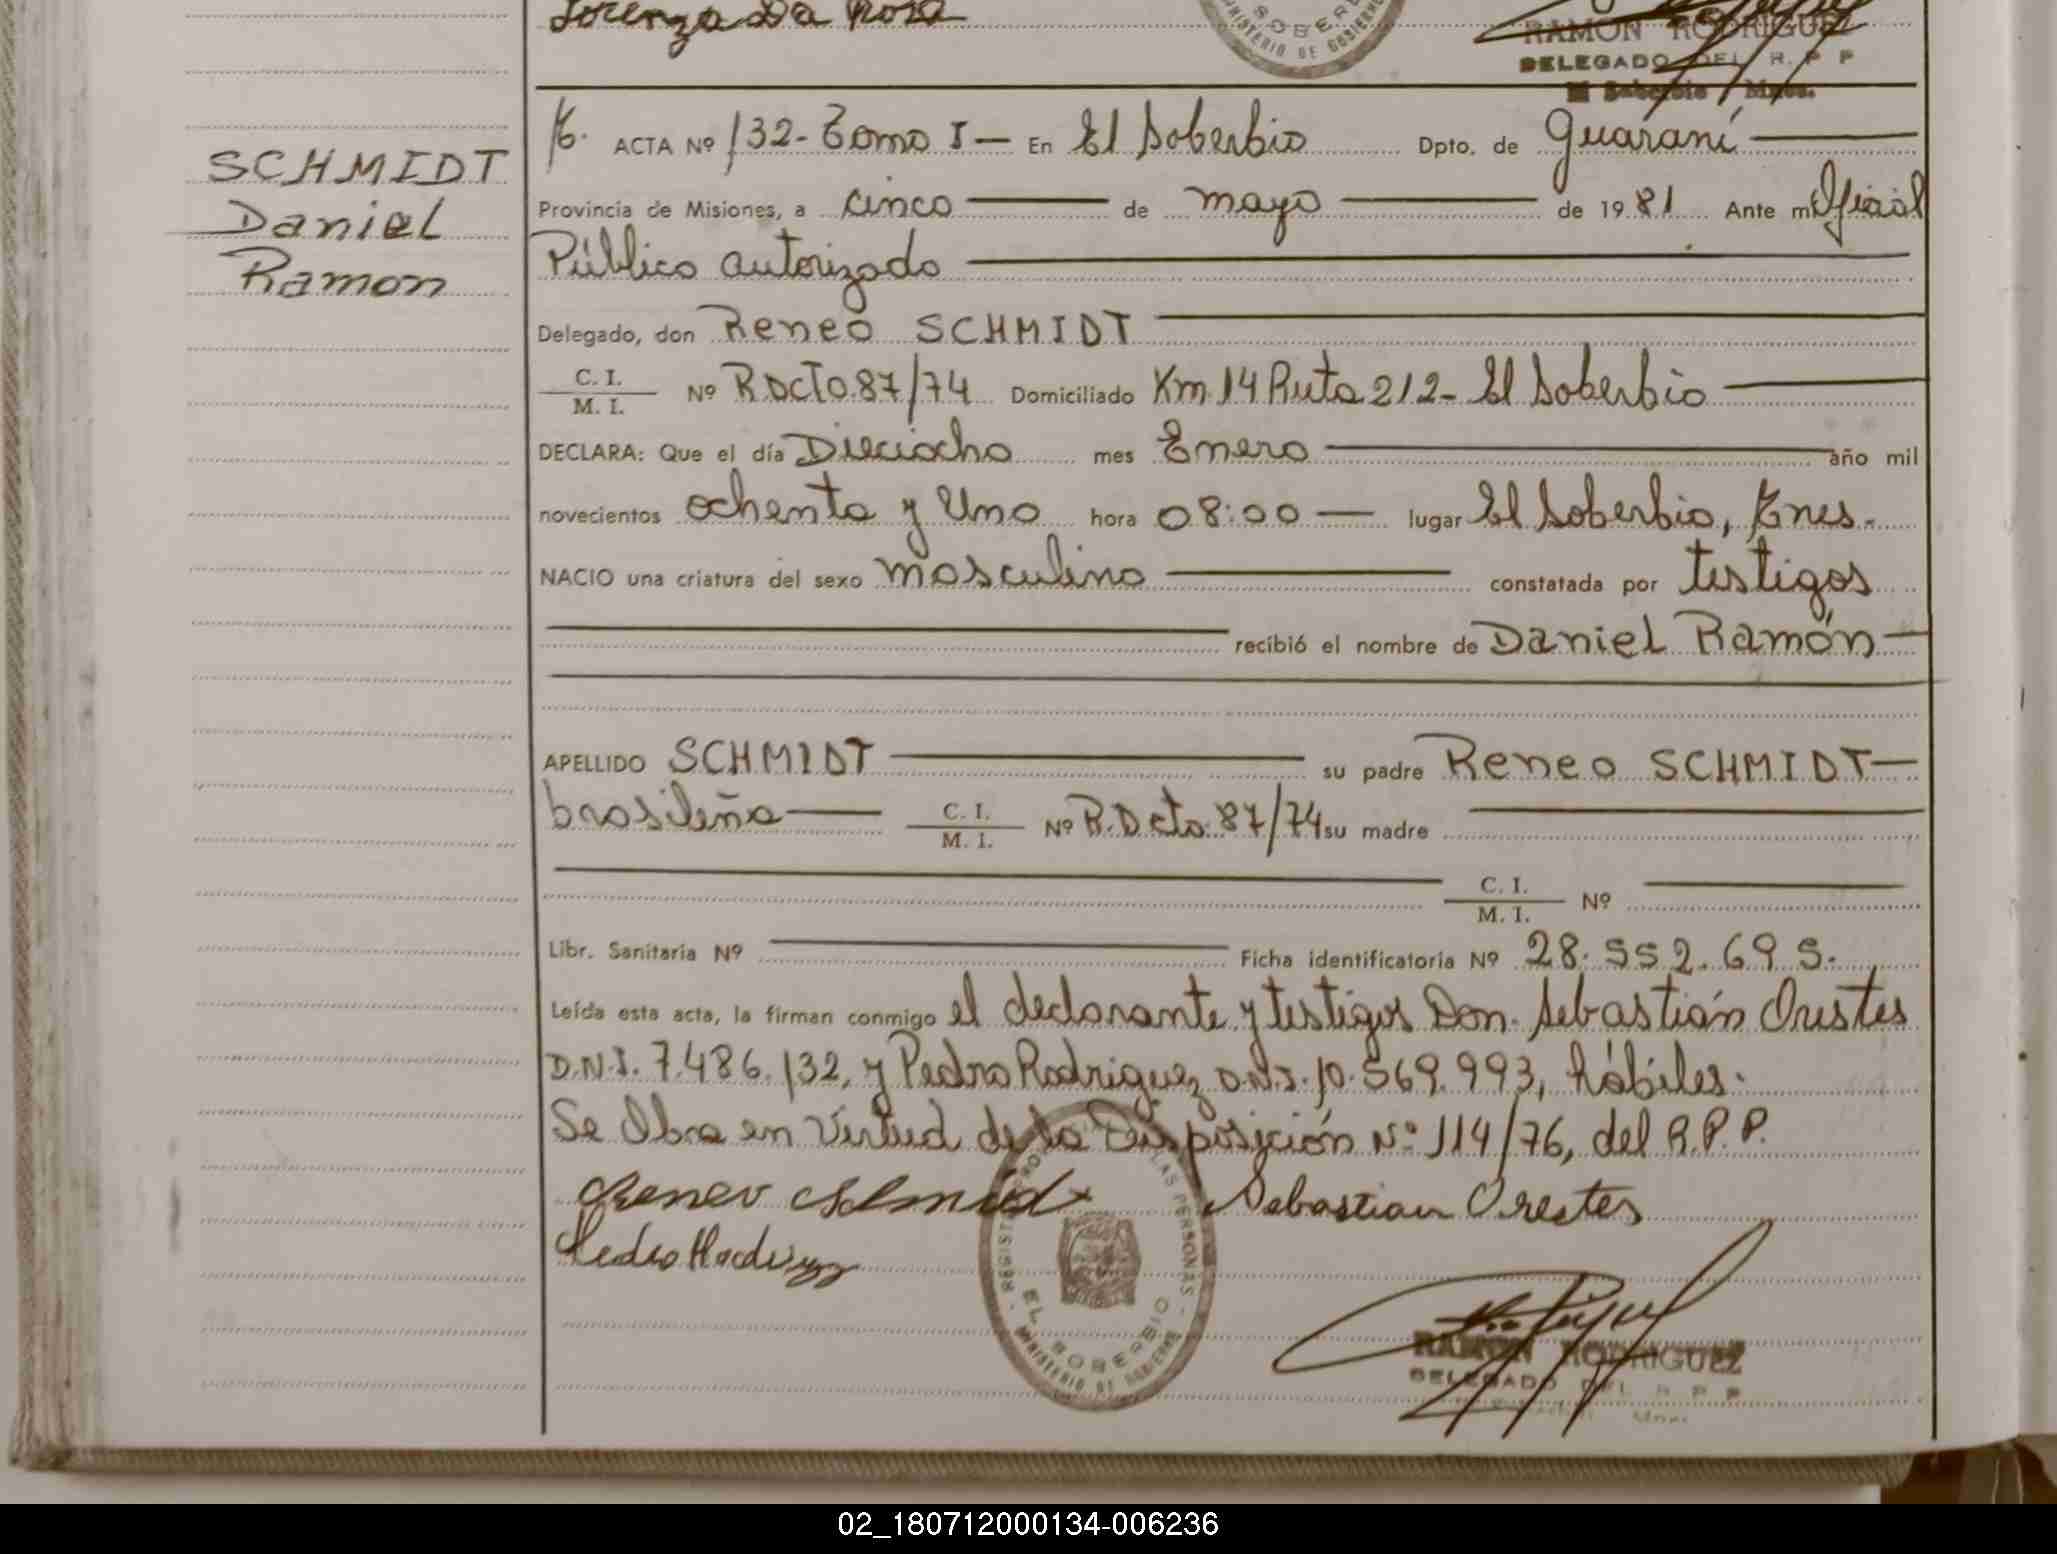 Lorenza Da Rosa
SOBERBIO
MINISTERIO DE GOBIERNO
RAMON RODRIGUEZ
DELEGADO DEL R. P. P
El Soberbio Mnes.
SCHMIDT
Daniel
Ramon
ACTA Nº 132- Tomo I — En El Soberbio Dpto. de Guaraní
Provincia de Misiones, a cinco de mayo de 1981 Ante mí Oficial
Público autorizado
Delegado, don Reneo SCHMIDT
C. I. / M. I. Nº R.DCTO.87/74 Domiciliado Km.14 Ruta 212- El Soberbio
DECLARA: Que el día Dieciocho mes Enero año mil
novecientos ochenta y Uno hora 08:00 — lugar El Soberbio, Mnes.
NACIO una criatura del sexo masculino constatada por testigos
recibió el nombre de Daniel Ramón
APELLIDO SCHMIDT su padre Reneo SCHMIDT
brasileña C. I. / M. I. Nº R.Dcto.87/74 su madre
C. I. / M. I. Nº
Libr. Sanitaria Nº Ficha identificatoria Nº 28.552.695.
Leída esta acta, la firman conmigo el declarante y testigos Don. Sebastián Orestes
D.N.I. 7.486.132, y Pedro Rodriguez D.N.I. 10.569.993, hábiles.
Se Obra en Virtud de la Disposición Nº 114/76, del R.P.P.
Reneo Schmidt Sebastian Orestes
Pedro Rodriguez
REGISTRO PROVINCIAL DE LAS PERSONAS
EL SOBERBIO
MINISTERIO DE GOBIERNO
RAMON RODRIGUEZ
DELEGADO DEL R. P. P
02_180712000134-006236